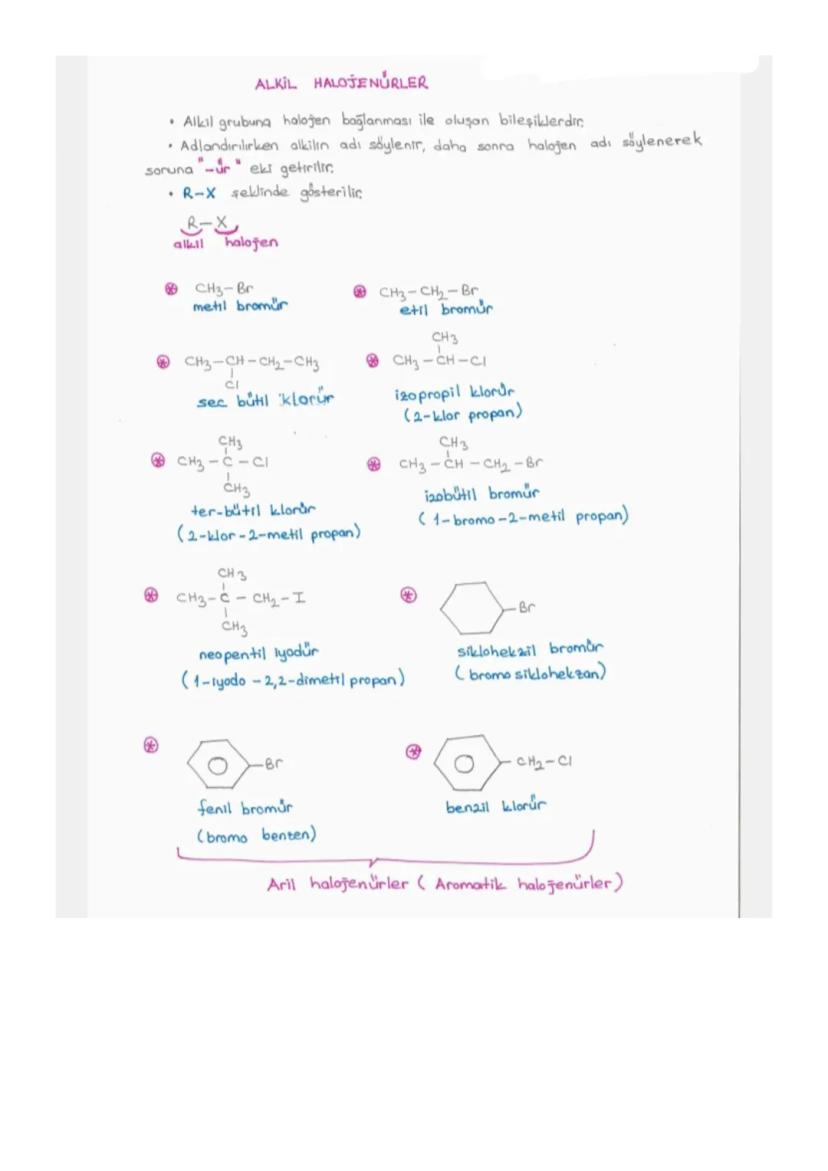 ALKİL HALOJENÜRLER
• Alkil grubuna halojen bağlanması ile oluşan bileşiklerdir.
• Adlandırılırken alkilin adı söylenir, daha sonra halojen adı söylenerek
soruna "-ür" eki getirilir.
• R-X şeklinde gösterilir.
R-X
alkil halojen
CH3-Br
metil bromür
CH3-CH2-Br
etil bromür
CH3-CH-CH2-CH3
Cl
sec bütil klorür
CH3
CH3-CH-Cl
izopropil klorür
(2-klor propan)
CH3
CH3-C-Cl
CH3
ter-bütil klorür
(2-klor-2-metil propan)
CH3
CH3-CH-CH2-Br
izobütil bromür
(1-bromo-2-metil propan)
CH3
CH3-C-CH2-I
CH3
neopentil iyodür
(1-iyodo-2,2-dimetil propan)
Br
siklohekzil bromür
(bromo siklohekzan)
Br
fenil bromür
(bromo benzen)
CH2-Cl
benzil klorür
Aril halojenürler (Aromatik halojenürler)